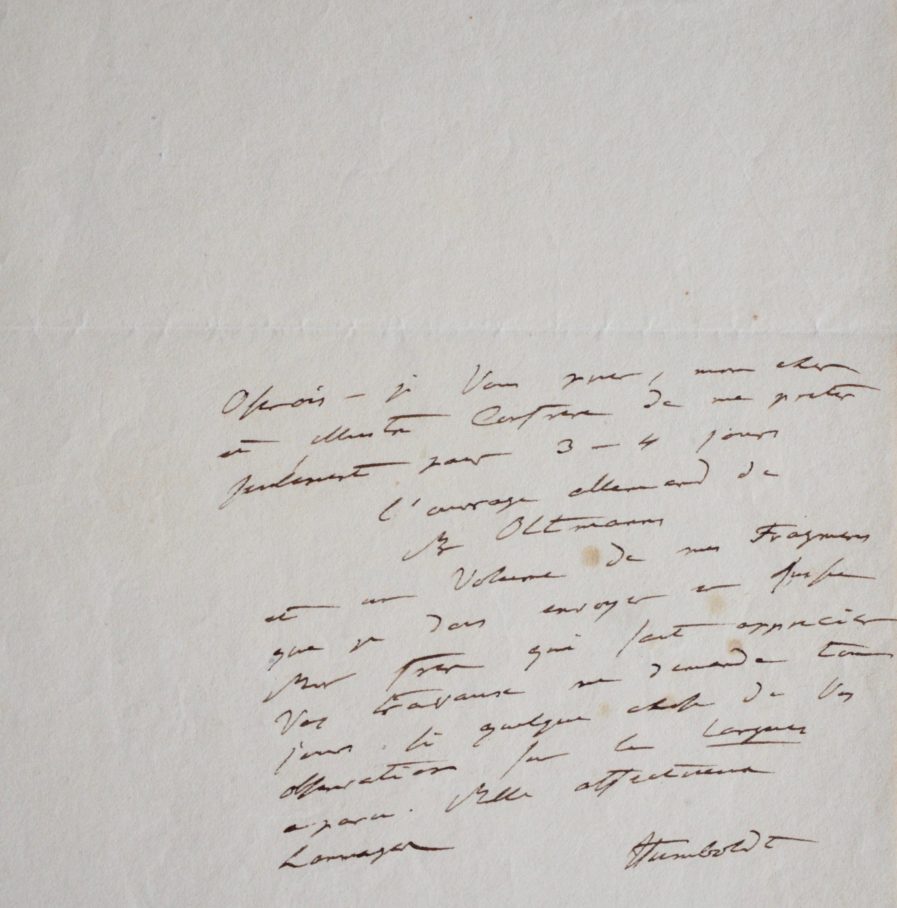 Oserois-je Vous prier, mon cher
et illustre Confrere de me preter
seulement pour 3-4 jours
l'ouvrage allemand de
Mr Oltmanns
et un Volume de mes Fragmens
que je dois envoyer en
Mon frere qui sait apprecier
Vos travaux me demande tous
jours si quelque chose de Vos
observations sur les Langues
a paru. Mille affectueux
hommages
Humboldt